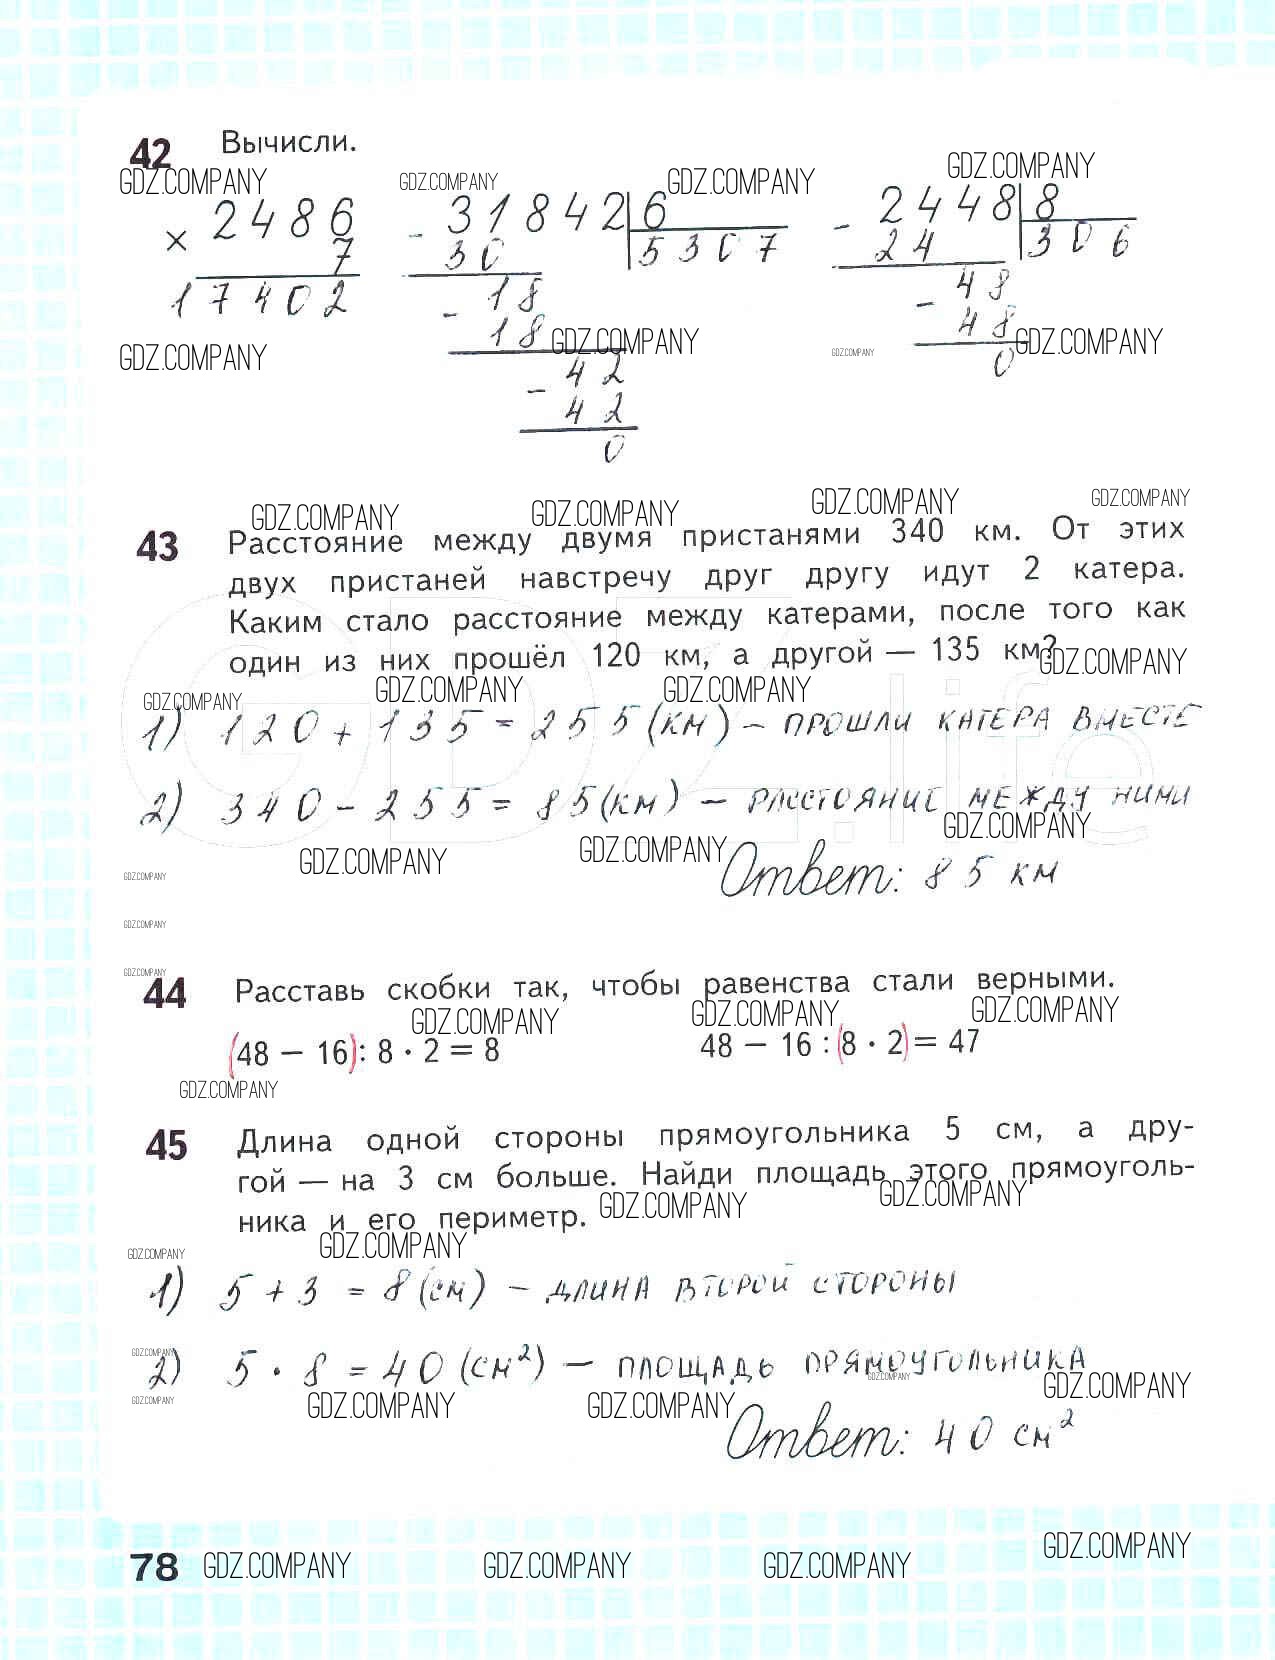 42 Вычисли.
GDZ.COMPANY GDZ.COMPANY GDZ.COMPANY GDZ.COMPANY
× 2486 - 31842 6 - 2448 8
7 30 5307 24 306
17402 - 18 - 48
18 48
GDZ.COMPANY GDZ.COMPANY GDZ.COMPANY GDZ.COMPANY
- 42 0
42
0
GDZ.COMPANY GDZ.COMPANY GDZ.COMPANY GDZ.COMPANY
43 Расстояние между двумя пристанями 340 км. От этих
двух пристаней навстречу друг другу идут 2 катера.
Каким стало расстояние между катерами, после того как
один из них прошёл 120 км, а другой — 135 км?
GDZ.COMPANY GDZ.COMPANY GDZ.COMPANY GDZ.COMPANY
GDZ.life
1) 120 + 135 = 255 (км) - прошли катера вместе
2) 340 - 255 = 85 (км) - расстояние между ними
GDZ.COMPANY GDZ.COMPANY GDZ.COMPANY
Ответ: 85 км
GDZ.COMPANY
GDZ.COMPANY
GDZ.COMPANY
44 Расставь скобки так, чтобы равенства стали верными.
GDZ.COMPANY GDZ.COMPANY GDZ.COMPANY
(48 − 16) : 8 · 2 = 8 48 − 16 : (8 · 2) = 47
GDZ.COMPANY
45 Длина одной стороны прямоугольника 5 см, а дру-
гой — на 3 см больше. Найди площадь этого прямоуголь-
ника и его периметр.
GDZ.COMPANY GDZ.COMPANY GDZ.COMPANY GDZ.COMPANY
1) 5 + 3 = 8 (см) - длина второй стороны
GDZ.COMPANY
2) 5 · 8 = 40 (см²) — площадь прямоугольника
GDZ.COMPANY GDZ.COMPANY GDZ.COMPANY GDZ.COMPANY GDZ.COMPANY
Ответ: 40 см²
78 GDZ.COMPANY GDZ.COMPANY GDZ.COMPANY GDZ.COMPANY